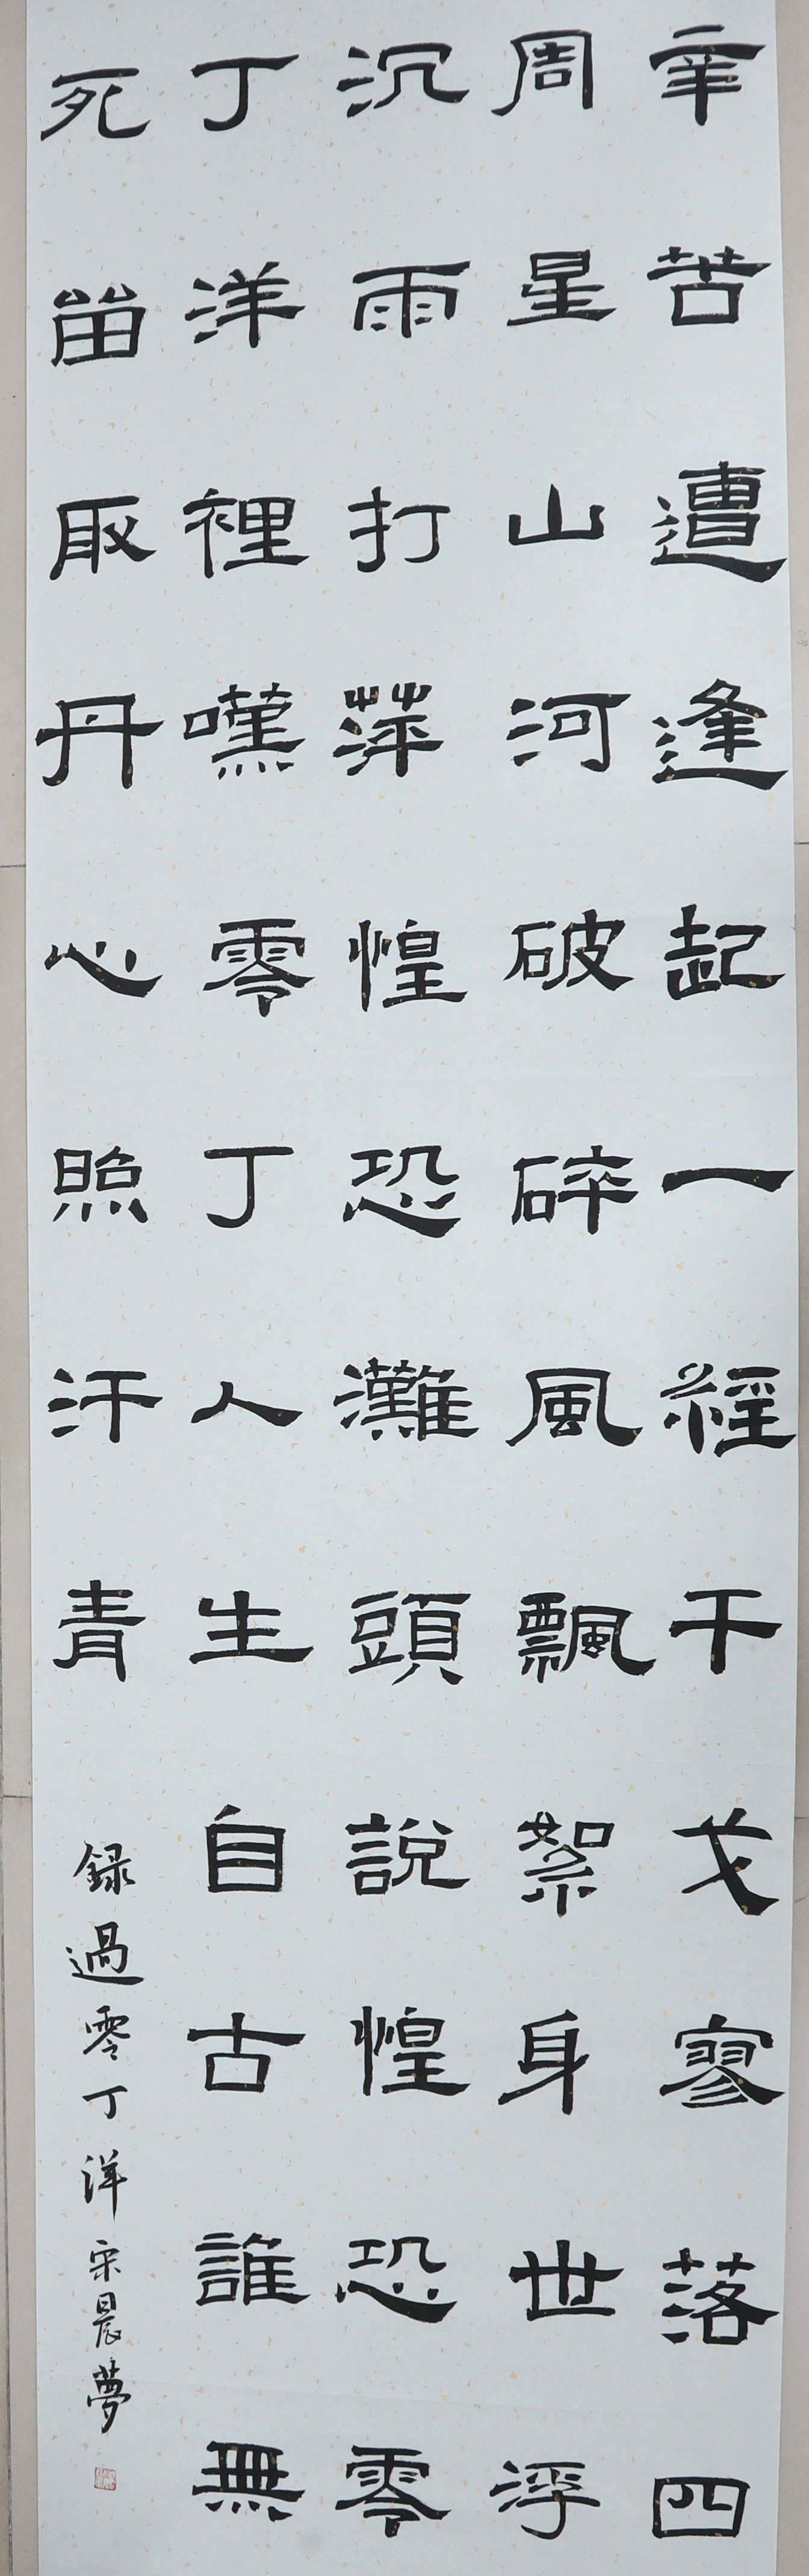 辛苦遭逢起一經干戈寥落四
周星山河破碎風飄絮身世浮
沉雨打萍惶恐灘頭說惶恐零
丁洋裡嘆零丁人生自古誰無
死畱取丹心照汗青
錄過零丁洋宋晨夢